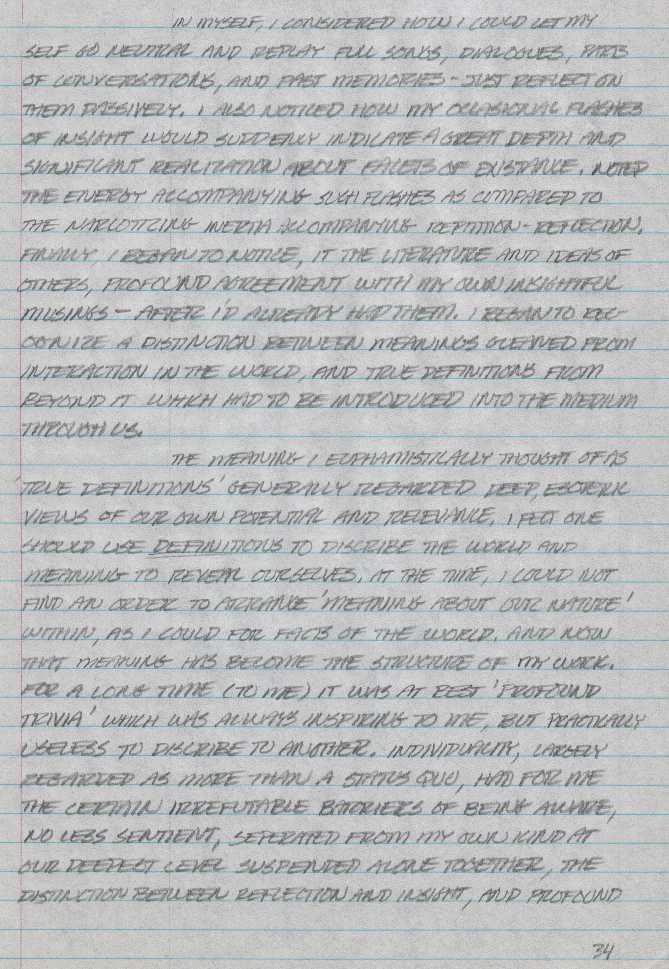 IN MYSELF, I CONSIDERED HOW I COULD LET MY
SELF GO NEUTRAL AND REPLAY FULL SONGS, DIALOGUES, PARTS
OF CONVERSATIONS, AND PAST MEMORIES - JUST REFLECT ON
THEM PASSIVELY. I ALSO NOTICED HOW MY OCCASIONAL FLASHES
OF INSIGHT WOULD SUDDENLY INDICATE A GREAT DEPTH AND
SIGNIFICANT REALIZATION ABOUT FACETS OF EXISTANCE. NOTED
THE ENERGY ACCOMPANYING SUCH FLASHES AS COMPARED TO
THE NARCOTIZING INERTIA ACCOMPANYING REPITITION-REFLECTION.
FINALLY, I BEGAN TO NOTICE, IT THE LITERATURE AND IDEAS OF
OTHERS, PROFOUND AGREEMENT WITH MY OWN INSIGHTFUL
MUSINGS - AFTER I'D ALREADY HAD THEM. I BEGAN TO REC-
OGNIZE A DISTINCTION BETWEEN MEANINGS GLEANED FROM
INTERACTION IN THE WORLD, AND TRUE DEFINITIONS FROM
BEYOND IT WHICH HAD TO BE INTRODUCED INTO THE MEDIUM
THROUGH US.
THE MEANING I EUPHAMISTICALLY THOUGHT OF AS
'TRUE DEFINITIONS' GENERALLY REGARDED DEEP, ESOTERIC
VIEWS OF OUR OWN POTENTIAL AND RELEVANCE. I FELT ONE
SHOULD USE DEFINITIONS TO DISCRIBE THE WORLD AND
MEANING TO REVEAL OURSELVES. AT THE TIME, I COULD NOT
FIND AN ORDER TO ARRANGE 'MEANING ABOUT OUR NATURE'
WITHIN, AS I COULD FOR FACTS OF THE WORLD. AND NOW
THAT MEANING HAS BECOME THE STRUCTURE OF MY WORK.
FOR A LONG TIME (TO ME) IT WAS AT BEST 'PROFOUND
TRIVIA' WHICH WAS ALWAYS INSPIRING TO ME, BUT PRACTICALLY
USELESS TO DISCRIBE TO ANOTHER. INDIVIDUALITY, LARGELY
REGARDED AS MORE THAN A STATUS QUO, HAD FOR ME
THE CERTAIN IRREFUTABLE BARRIERS OF BEING AWARE,
NO LESS SENTIENT, SEPERATED FROM MY OWN KIND AT
OUR DEEPEST LEVEL SUSPENDED ALONE TOGETHER, THE
DISTINCTION BETWEEN REFLECTION AND INSIGHT, AND PROFOUND
34